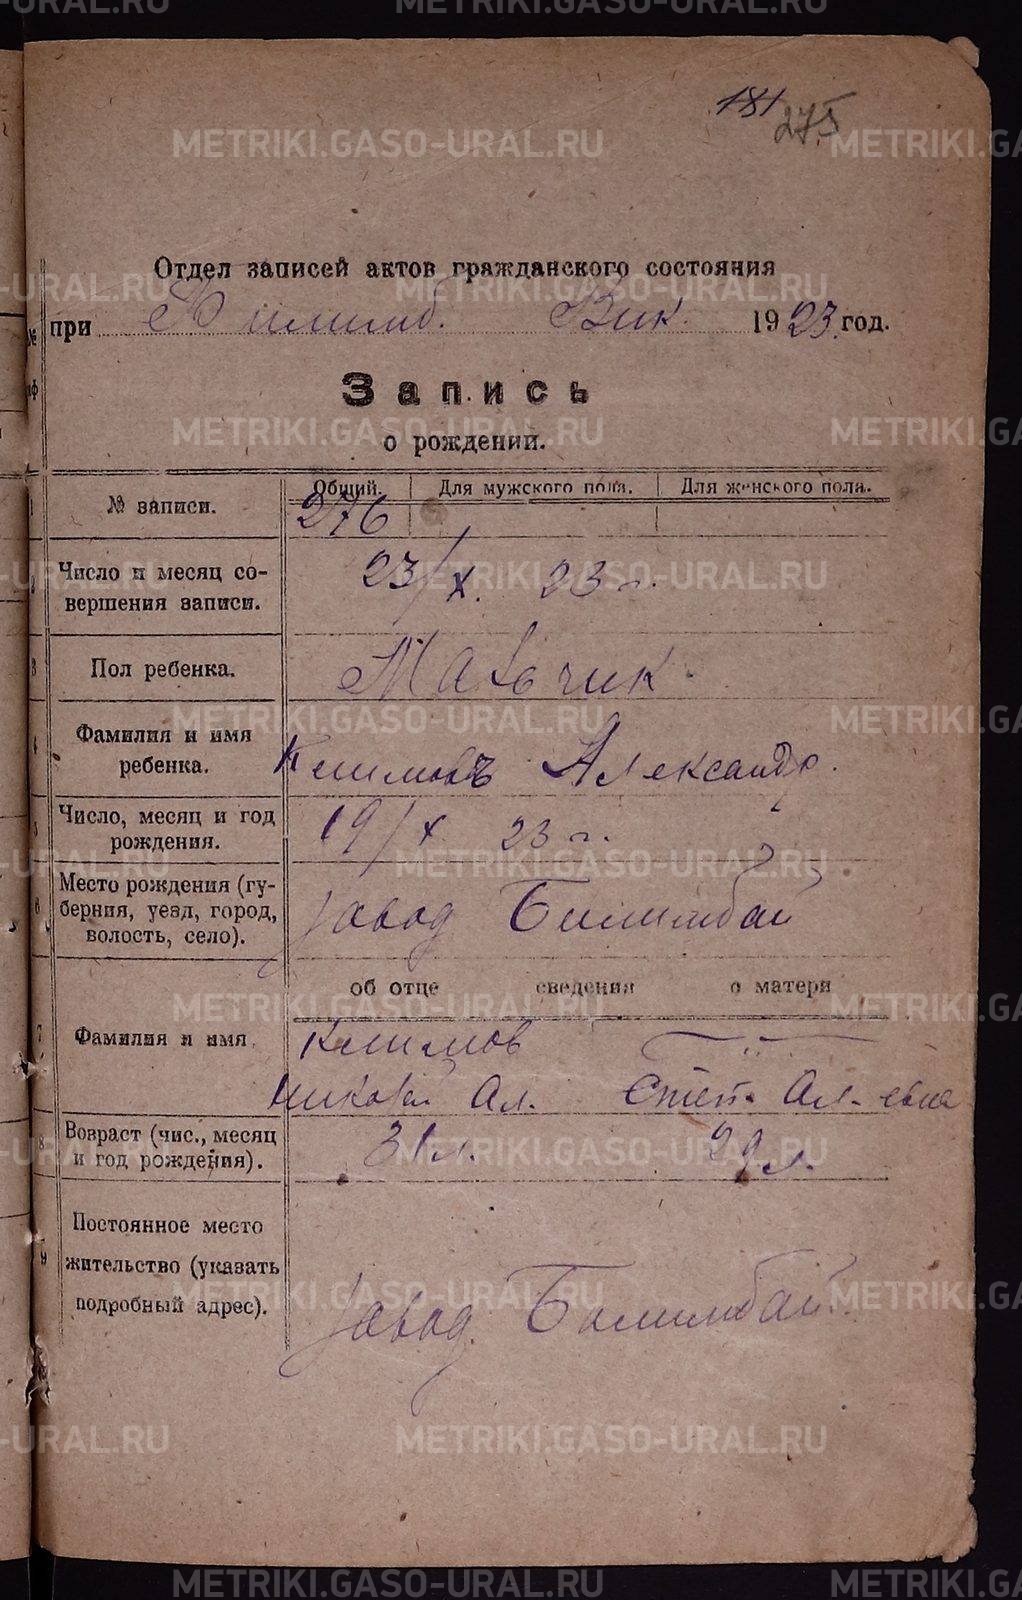 181 275
Отдел записей актов гражданского состояния
при Билимб. Вик. 1923 год.
Запись
о рождении.
№ записи.
Общий. Для мужского пола. Для женского пола.
276
Число и месяц со-
вершения записи.
23/X. 23 г.
Пол ребенка.
Мальчик
Фамилия и имя
ребенка.
Климовъ Александр.
Число, месяц и год
рождения.
19/X 23 г.
Место рождения (гу-
берния, уезд, город,
волость, село).
завод Билимбай
об отце сведения о матери
Фамилия и имя
Климов — " —
Николай Ал. Степ. Ал-евна
Возраст (чис., месяц
и год рождения).
31 л. 29 л.
Постоянное место
жительство (указать
подробный адрес).
завод. Билимбай.
METRIKI.GASO-URAL.RU